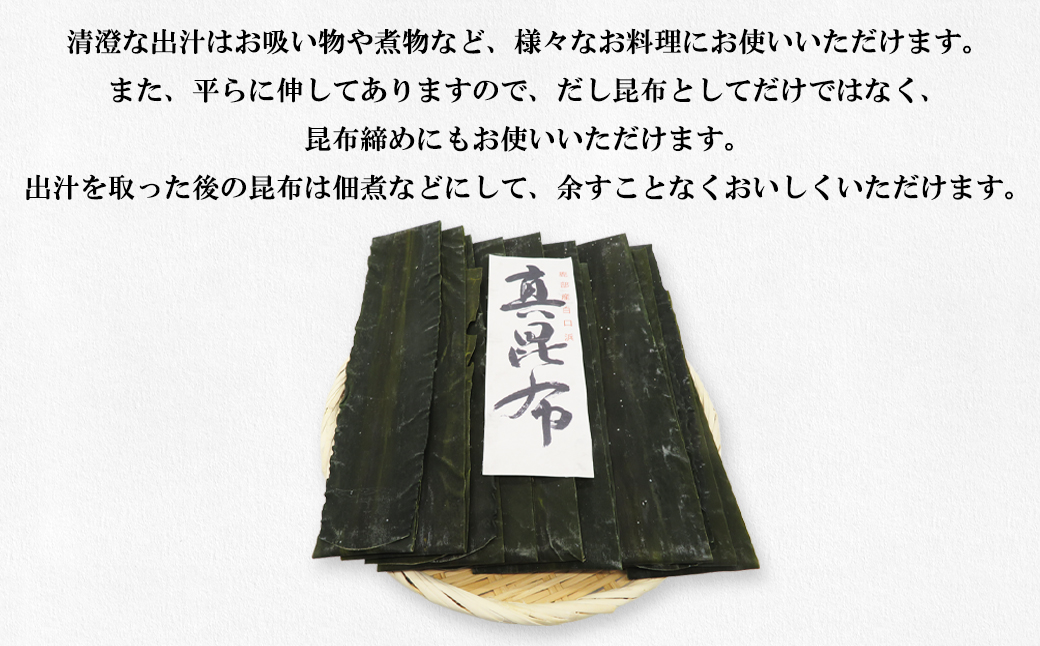 清澄な出汁はお吸い物や煮物など、様々なお料理にお使いいただけます。
また、平らに伸してありますので、だし昆布としてだけではなく、
昆布締めにもお使いいただけます。
出汁を取った後の昆布は佃煮などにして、余すことなくおいしくいただけます。
鹿部産白口浜
真昆布